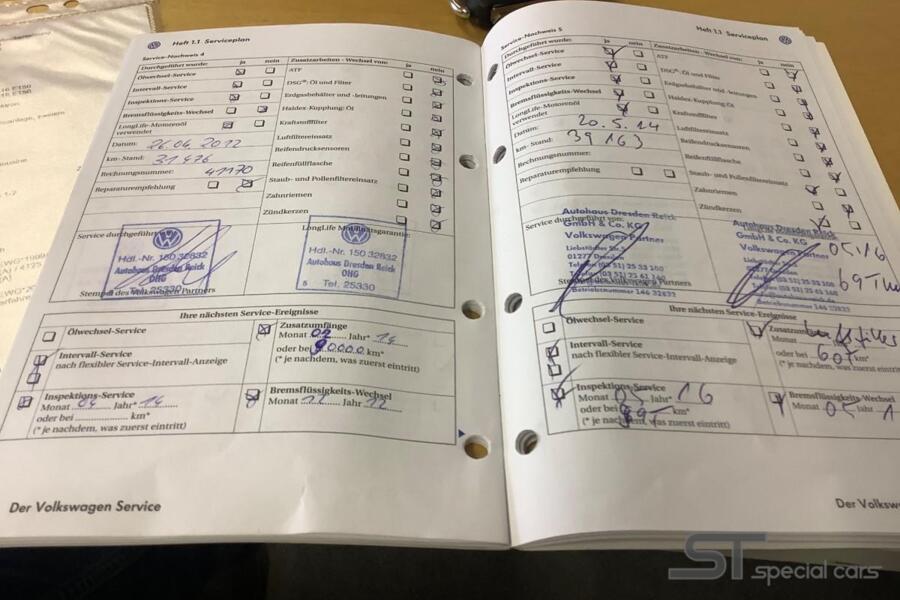 Heft 1.1 Serviceplan
Service-Nachweis 4
Durchgeführt wurde: ja nein
Ölwechsel-Service
Intervall-Service
Inspektions-Service
Bremsflüssigkeits-Wechsel
LongLife-Motorenöl
verwendet
Datum: 26.04.2012
km-Stand: 31476
Rechnungsnummer: 41170
Reparaturempfehlung
Zusatzarbeiten - Wechsel von: ja nein
ATF
DSG®: Öl und Filter
Erdgasbehälter und -leitungen
Haldex-Kupplung: Öl
Kraftstofffilter
Luftfiltereinsatz
Reifendrucksensoren
Reifenfüllflasche
Staub- und Pollenfiltereinsatz
Zahnriemen
Zündkerzen
Service durchgeführt
Hdl.-Nr. 150 32832
Autohaus Dresden Reick
OHG
Tel. 25330
Stempel des Volkswagen Partners
LongLife Mobilitätsgarantie:
Hdl.-Nr. 150 32832
Autohaus Dresden Reick
OHG
8 Tel. 25330
Ihre nächsten Service-Ereignisse
Ölwechsel-Service
Intervall-Service
nach flexibler Service-Intervall-Anzeige
Inspektions-Service
Monat 04 Jahr* 14
oder bei km*
(* je nachdem, was zuerst eintritt)
Zusatzumfänge
Monat 02 Jahr* 14
oder bei 90000 km*
(* je nachdem, was zuerst eintritt)
Bremsflüssigkeits-Wechsel
Monat 11 Jahr 12
Der Volkswagen Service
Heft 1.1 Serviceplan
Service-Nachweis 5
Durchgeführt wurde: ja nein
Ölwechsel-Service
Intervall-Service
Inspektions-Service
Bremsflüssigkeits-Wechsel
LongLife-Motorenöl
verwendet
Datum: 20.5.14
km-Stand: 39163
Rechnungsnummer:
Reparaturempfehlung
Zusatzarbeiten - Wechsel von: ja nein
ATF
DSG®: Öl und Filter
Erdgasbehälter und -leitungen
Haldex-Kupplung: Öl
Kraftstofffilter
Luftfiltereinsatz
Reifendrucksensoren
Reifenfüllflasche
Staub- und Pollenfiltereinsatz
Zahnriemen
Zündkerzen
Service durchgeführt von:
Autohaus Dresden Reick
GmbH & Co. KG
Volkswagen Partner
Liebstädter Str. 5
01277 Dresden
Autohaus Dresden Reick
GmbH & Co. KG
Volkswagen Partner
01277 Dresden
05.16
Ihre nächsten Service-Ereignisse
Ölwechsel-Service
Intervall-Service
nach flexibler Service-Intervall-Anzeige
Inspektions-Service
Monat 05 Jahr 16
oder bei 69T km*
(* je nachdem, was zuerst eintritt)
Monat
oder bei 60T km*
(* je nachdem, was zuerst eintritt)
Bremsflüssigkeits-Wechsel
Monat 05 Jahr
Der Volkswagen
ST special cars